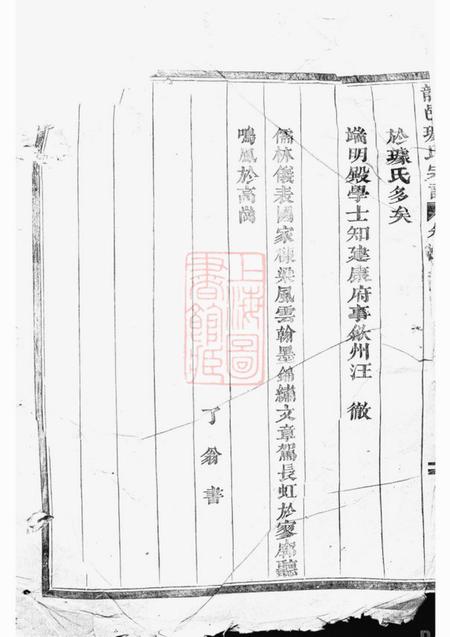 龍邑璩氏宗譜
於璩氏多矣
端明殿學士知建康府事歙州汪 徹
儒林儀表國家棟梁風雲翰墨錦繡文章駕長虹於寥廓聽
鳴鳳於高崗
了翁書
上海圖書館藏